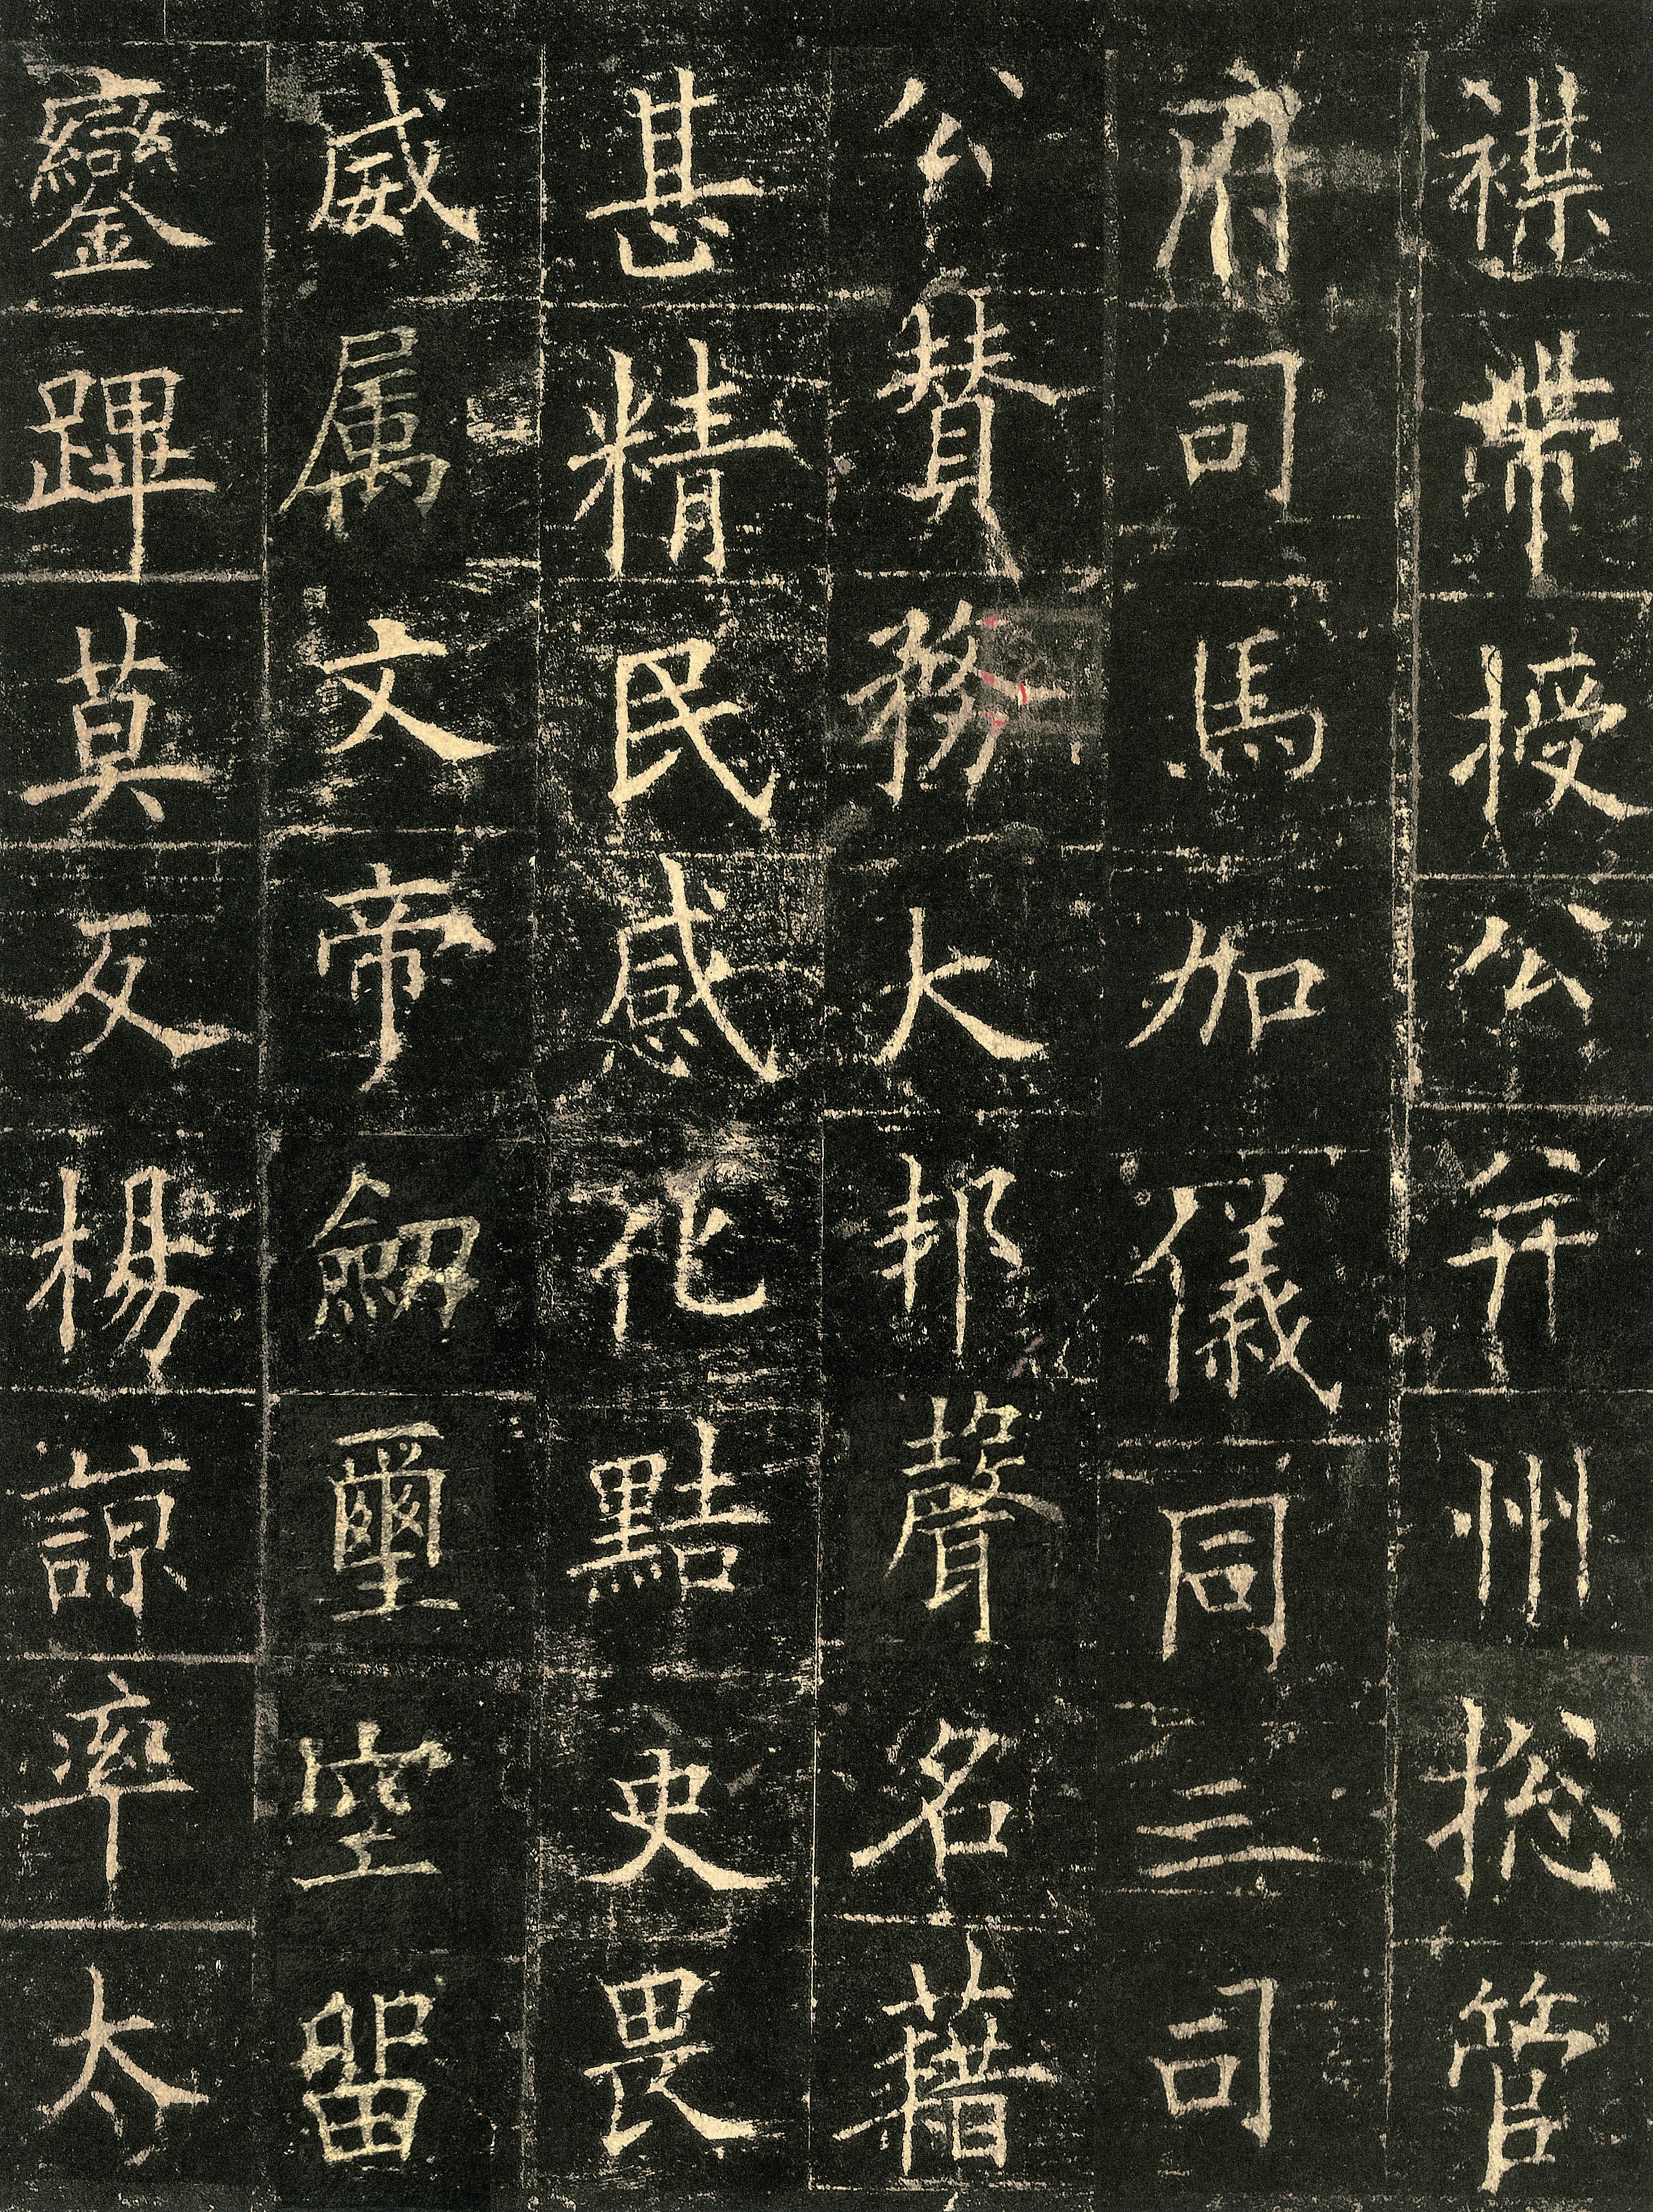 襟帶授公并州捴管
府司馬加儀同三司
公贊務大邦聲名藉
甚精民感化點吏畏
威属文帝劒璽空留
鑾蹕莫反楊諒率太